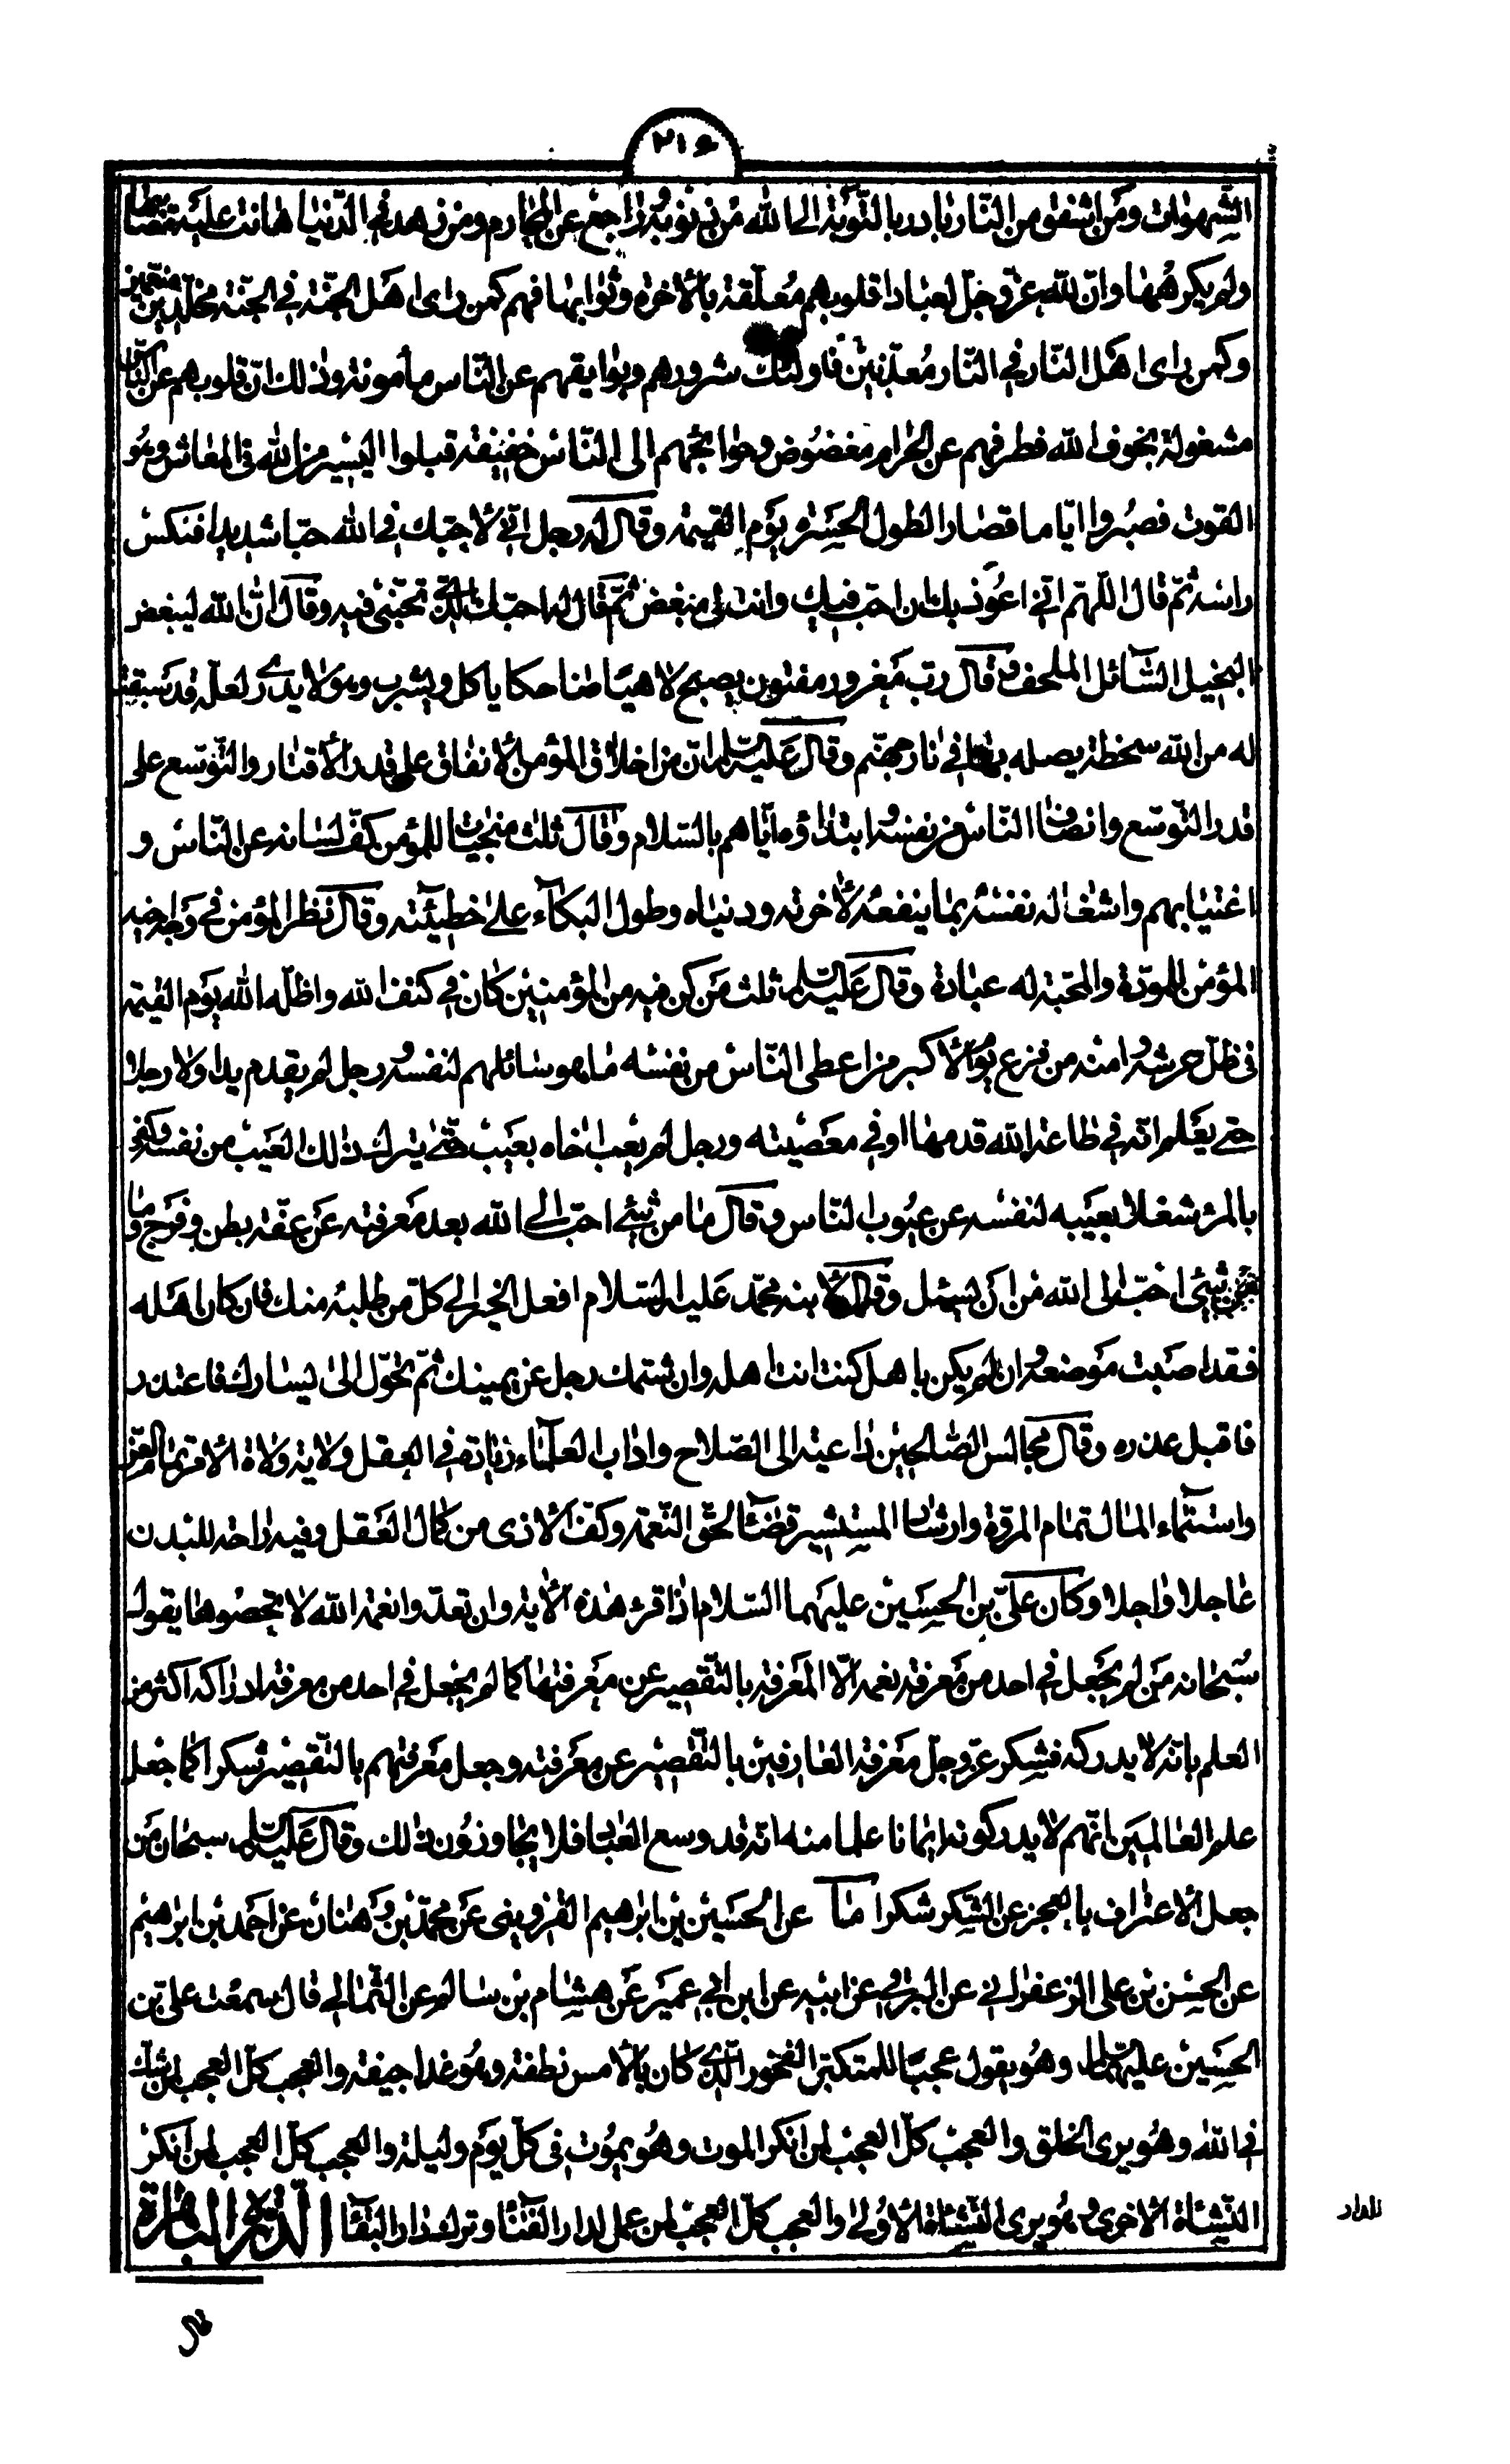 ٢١٤
الشهوات ومن اشفق من النار بادر بالتوبة الى الله من ذنوبه وراجع عن المحارم ومن زهد في الدنيا هانت عليه مصائبها
ولم يكرهها وان لله عز وجل لعبادا قلوبهم معلقة بالأخرة وثوابها فهم كمن راى اهل الجنة في الجنة مخلدين منعمين
وكمن راى اهل النار في النار معذبين فاولئك شرورهم وبوايقهم عن الناس مأمونة وذلك ان قلوبهم عن الناس
مشغولة بخوف الله فطرفهم عن الحرام مغضوض وحوائجهم الى الناس خفيفة قبلوا اليسير من الله في المعاش وهو
القوت فصبروا اياما قصارا لطول الحسرة يوم القيمة وقال له رجل اني لأحبك في الله حبا شديدا فنكس
راسه ثم قال اللهم اني اعوذ بك ان احب فيك وانت لي مبغض ثم قال له احبك للذي تحبني فيه وقال ان الله ليبغض
البخيل السائل الملحف وقال رب مغرور مفتون يصبح لاهيا ضاحكا ياكل ويشرب وهو لا يدري لعله قد سبقت
له من الله سخطة يصله بها في نار جهنم وقال عليه السلم ان من اخلاق المؤمن الأنفاق على قدر الأقتار والتوسع على
قدر التوسع وانصاف الناس من نفسه وابتداؤه اياهم بالسلام وقال ثلث منجيات للمؤمن كف لسانه عن الناس و
اغتيابهم واشغاله نفسه بما ينفعه لأخرته ودنياه وطول البكآء على خطيئته وقال نظر المؤمن في وجه اخيه
المؤمن للمودة والمحبة له عبادة وقال عليه السلم ثلث من كن فيه من المؤمنين كان في كنف الله واظله الله يوم القيمة
في ظل عرشه وامنه من فزع يوم الأكبر من اعطى الناس من نفسه ما هو سائلهم لنفسه ورجل لم يقدم يدا ولا رجلا
حتى يعلم انه في طاعة الله قدمها او في معصيته ورجل لم يعب اخاه بعيب حتى يترك ذلك العيب من نفسه وكفى
بالمرء شغلا بعيبه لنفسه عن عيوب الناس وقال ما من شيء احب الى الله بعد معرفته عن عفة بطن وفرج وما
من شيئ احب الى الله من ان يسئل وقال لأبنه محمد عليه السلام افعل الخير الى كل من طلبه منك فان كان اهله
فقد اصبت موضعه وان لم يكن باهل كنت انت اهله وان شتمك رجل عن يمينك ثم تحول الى يسارك فاعتذر
فاقبل عذره وقال مجالس الصالحين داعية الى الصلاح واداب العلمآء زيادة في العقل وولاية ولاة الأمر تمام العز
واستنمآء المال تمام المروة وارشاد المستشير قضآء لحق النعمة وكف الأذى من كمال العقل وفيه راحة للبدن
عاجلا واجلا وكان علي بن الحسين عليهما السلام اذا قرء هذه الأية وان تعدوا نعمة الله لا تحصوها يقول
سبحانه من لم يجعل في احد من معرفة نعمه الا المعرفة بالتقصير عن معرفتها كما لم يجعل في احد من معرفة ادراكه اكثر من
العلم بانه لا يدركه فشكر عز وجل معرفة العارفين بالتقصير عن معرفته وجعل معرفتهم بالتقصير شكرا كما جعل
علم العالمين انهم لا يدركونه ايمانا علما منه انه قد وسع العباد فلا يتجاوزون ذلك وقال عليه السلم سبحان من
جعل الأعتراف بالعجز عن الشكر شكرا ما عن الحسين بن ابراهيم القزويني عن محمد بن وهبان عن احمد بن ابراهيم
عن الحسن بن علي الزعفراني عن البرقي عن ابيه عن ابن ابي عمير عن هشام بن سالم عن الثمالي قال سمعت علي بن
الحسين عليهما السلم وهو يقول عجبا للمتكبر الفخور الذي كان بالأمس نطفة وهو غدا جيفة والعجب كل العجب لمن شك
في الله وهو يرى الخلق والعجب كل العجب لمن انكر الموت وهو يموت في كل يوم وليلة والعجب كل العجب لمن انكر
النشأة الأخرى وهو يرى النشأة الأولى والعجب كل العجب لمن عمل لدار الفنآء وترك دار البقآء الدرة الباهرة